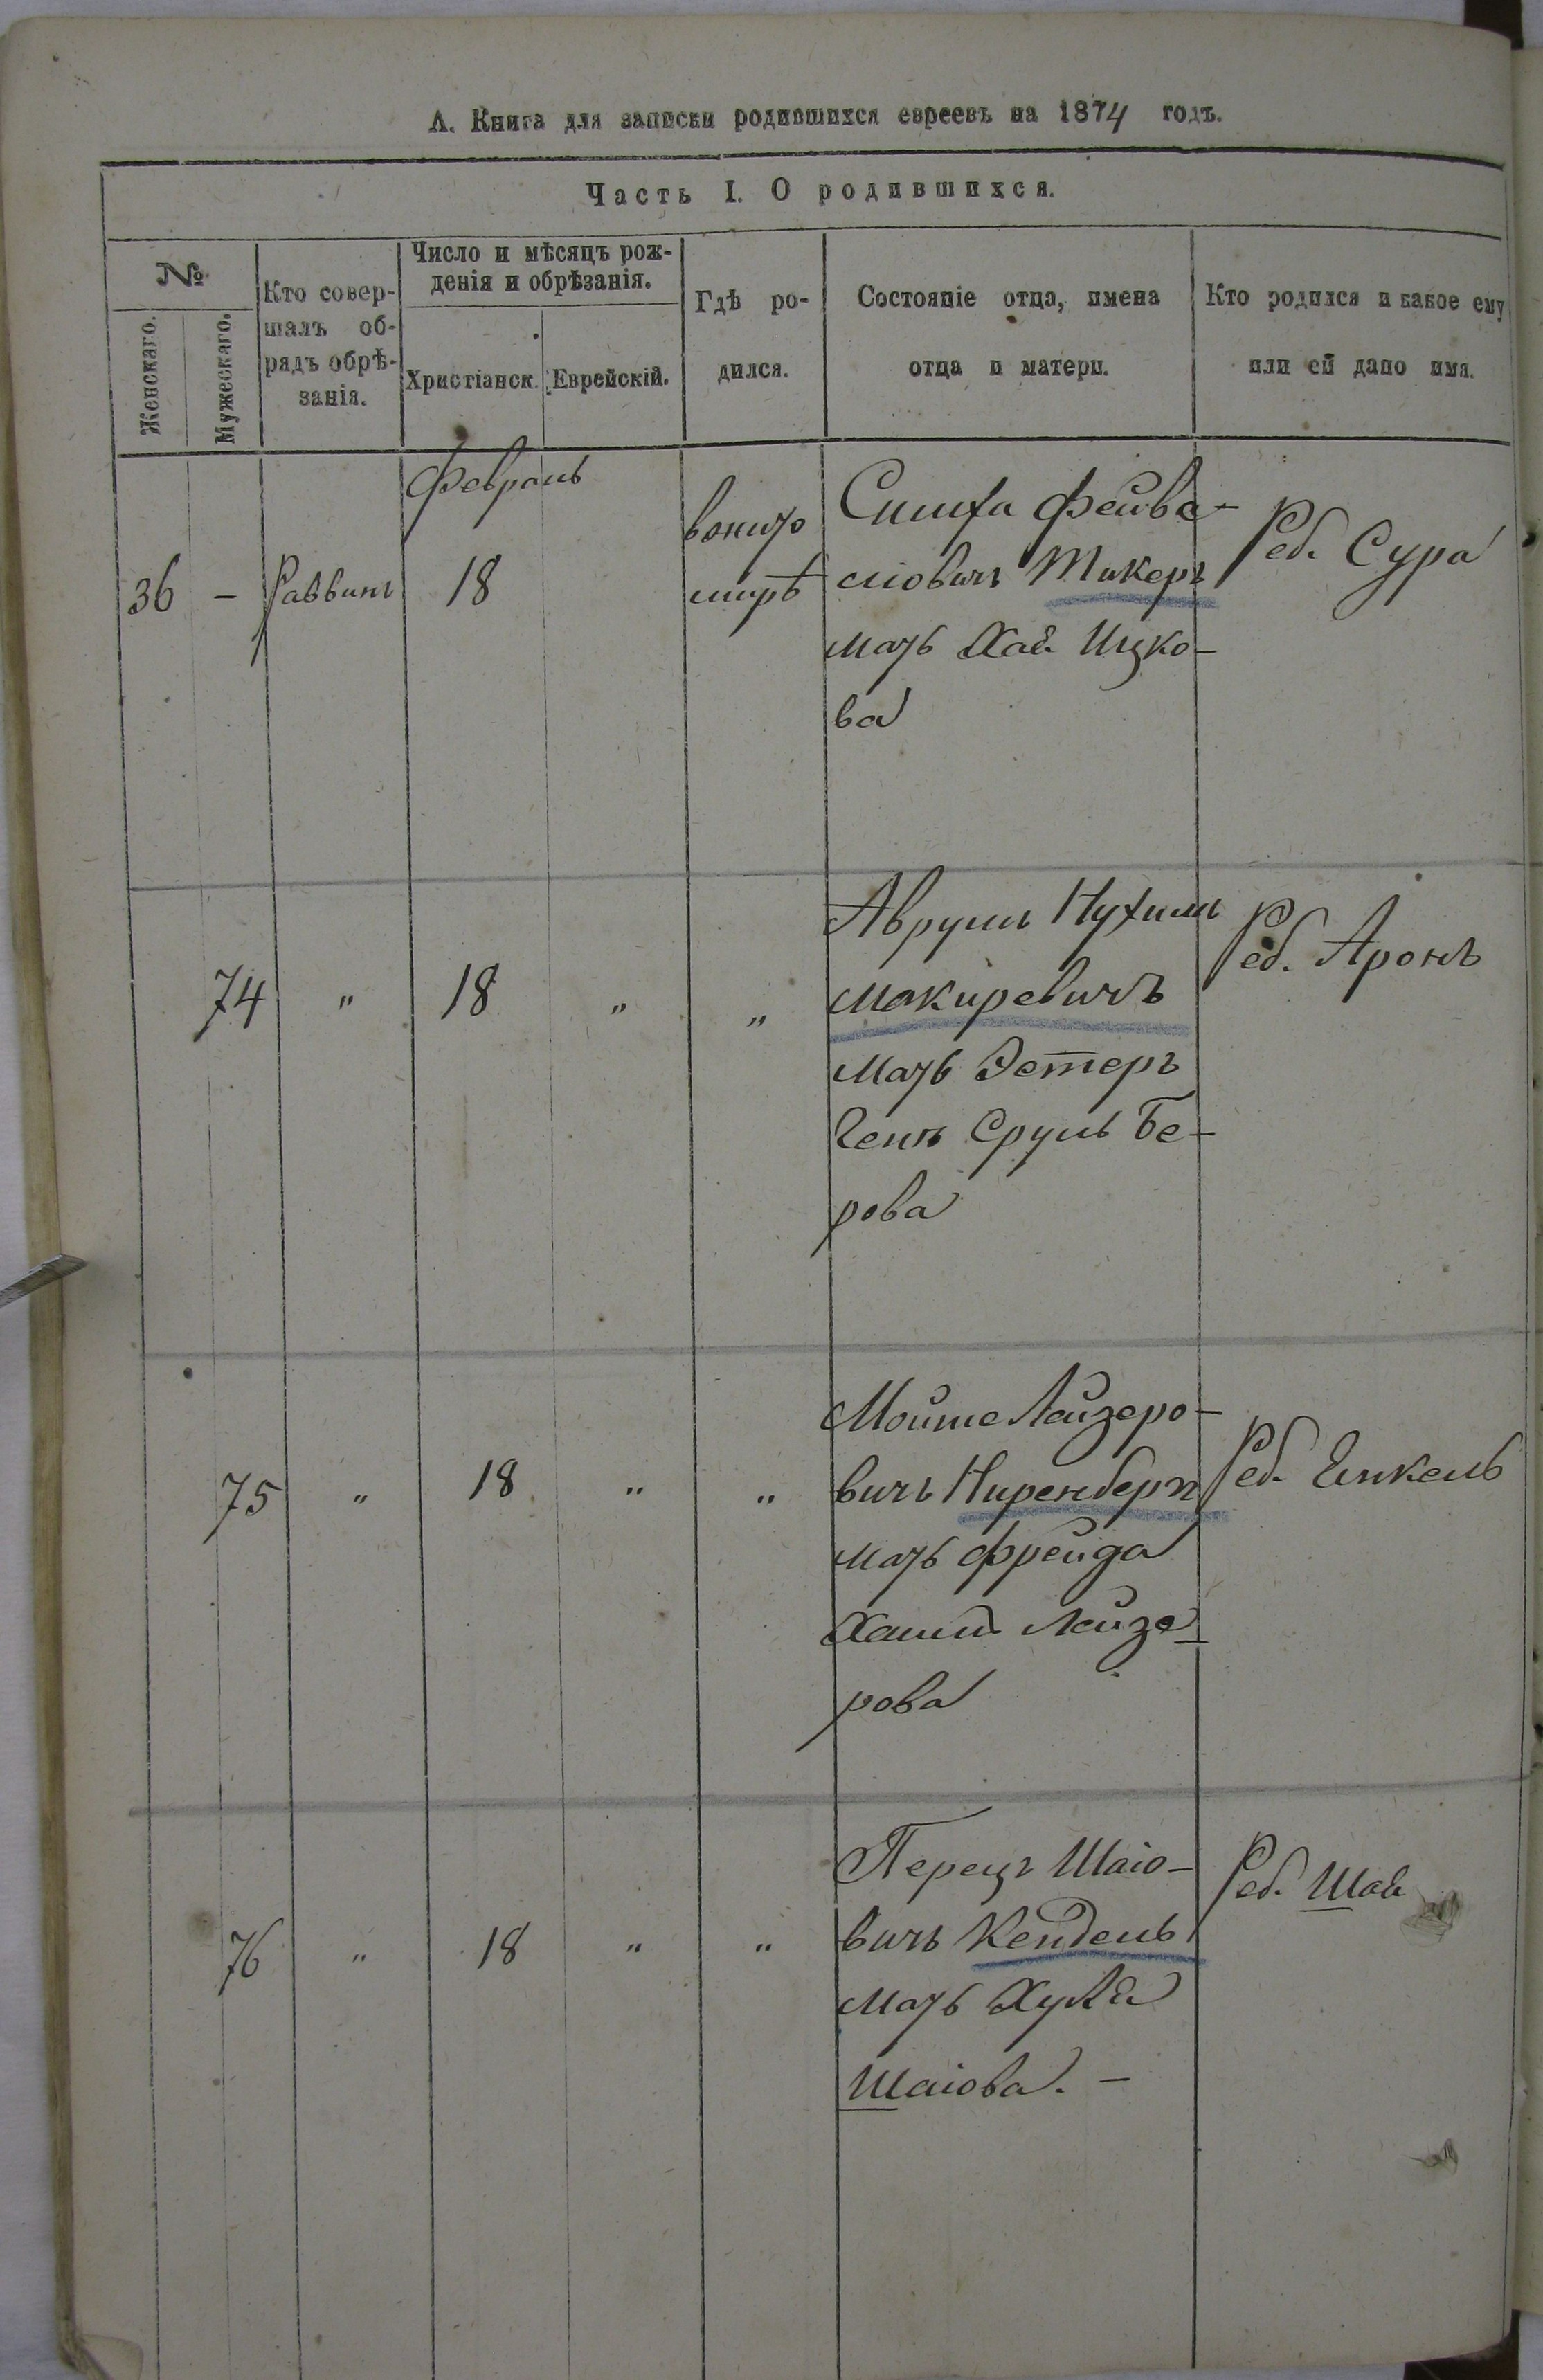 А. Книга для записки родившихся евреевъ на 1874 годъ.
Часть I. О родившихся.
№
Женскаго.
Мужескаго.
Кто совер-
шалъ об-
рядъ обрѣ-
занія.
Число и мѣсяцъ рож-
денія и обрѣзанія.
Христіанск.
Еврейскій.
Гдѣ ро-
дился.
Состояніе отца, имена
отца и матери.
Кто родился и какое ему
или ей дано имя.
Февраль
36 – Раввинъ 18
вжито
мирѣ
Симха Фейве-
лІовичъ Тикеръ
мать Хая Ицко-
ва
Реб. Сура
74 " 18 " "
Аврумъ Нухимъ
Макиревичъ
мать Эстеръ
Геня Сруль Бе-
рова
Реб. Аронъ
75 " 18 " "
Мойше Лейзеро-
вичъ Ниренбергъ
мать Фрейда
Хаия Лейзе-
рова
Реб. Янкель
76 " 18 " "
Перецъ Шаіо-
вичъ Кендель
мать Хуля
Шаіова. –
Реб. Шая